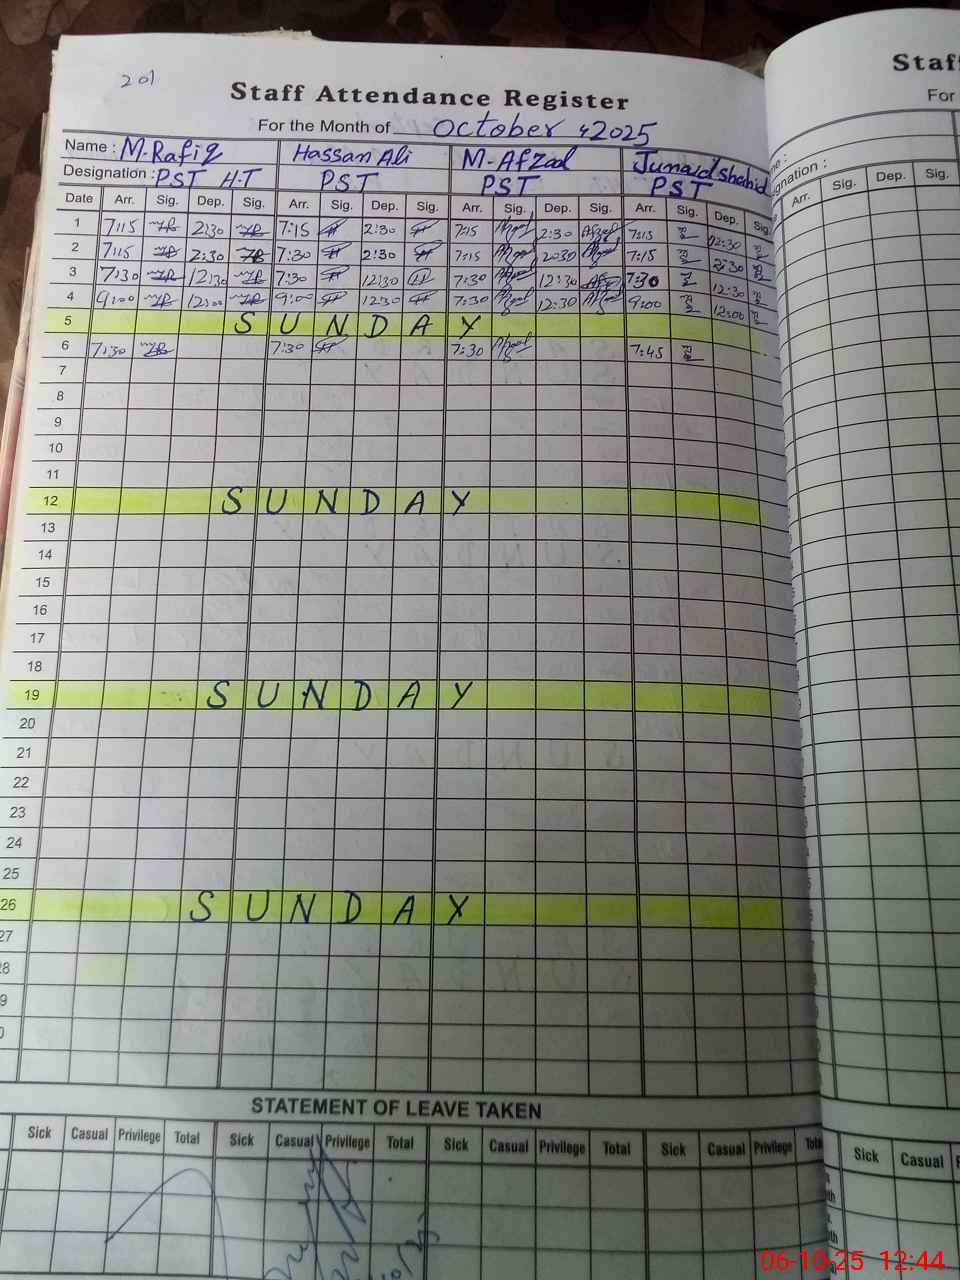 201
Staff Attendance Register
For the Month of October, 2025
Name : M.Rafiq Hassan Ali M-Afzaal Junaid shahid
Designation : PST H.T PST PST PST
Date Arr. Sig. Dep. Sig. Arr. Sig. Dep. Sig. Arr. Sig. Dep. Sig. Arr. Sig. Dep. Sig.
1 7:15 2:30 7:15 2:30 7:15 2:30 7:15 02:30
2 7:15 2:30 7:30 2:30 7:15 2:30 7:15 2:30
3 7:30 12:30 7:30 12:30 7:30 12:30 7:30 12:30
4 9:00 12:00 9:00 12:30 7:30 12:30 9:00 12:00
5 SUNDAY
6 7:30 7:30 7:30 7:45
7
8
9
10
11
12 SUNDAY
13
14
15
16
17
18
19 SUNDAY
20
21
22
23
24
25
26 SUNDAY
27
28
9
0
STATEMENT OF LEAVE TAKEN
Sick Casual Privilege Total Sick Casual Privilege Total Sick Casual Privilege Total Sick Casual Privilege Total
Staff
For
me :
signation :
Arr. Sig. Dep. Sig.
Sick Casual
06-10-25 12:44